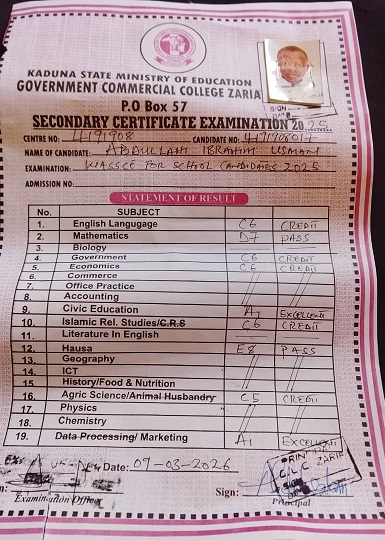 KADUNA STATE MINISTRY OF EDUCATION
GOVERNMENT COMMERCIAL COLLEGE ZARIA
P.O Box 57
SECONDARY CERTIFICATE EXAMINATION 2025
CENTRE NO: 4191908 CANDIDATE NO:
NAME OF CANDIDATE: ABDULLAHI IBRAHIM USMAN
EXAMINATION: WASSCE FOR SCHOOL CANDIDATES 2025
ADMISSION NO:
STATEMENT OF RESULT
No. SUBJECT
1. English Langugage C6 CREDIT
2. Mathematics D7 PASS
3. Biology
4. Government C6 CREDIT
5. Economics C6 CREDIT
6. Commerce
7. Office Practice
8. Accounting
9. Civic Education A1 EXCELLENT
10. Islamic Rel. Studies/C.R.S C6 CREDIT
11. Literature In English
12. Hausa E8 PASS
13. Geography
14. ICT
15 History/Food & Nutrition
16. Agric Science/Animal Husbandry C5 CREDIT
17. Physics
18. Chemistry
19. Data Processing/ Marketing A1 EXCELLENT
Date: 09-03-2026
PRINCIPAL
G.C.C ZARIA
Sign:
Examination Officer Principal